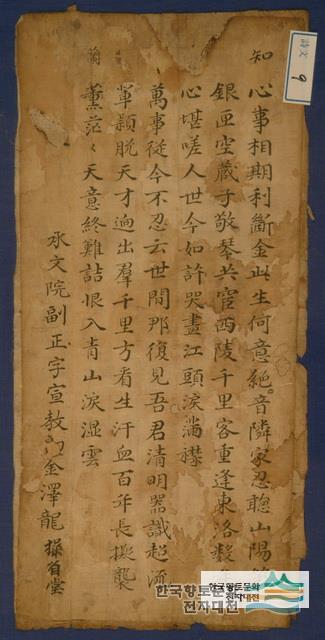 詩文
9
知
心事相期利斷金此生何意絶音隣家忍聽山陽
銀匣空藏子敬琴共宦西陵千里客重逢東洛數
心堪嗟人世今如許哭盡江頭淚滿襟
萬事從今不忍云世間那復見吾君清明器識超流
輩穎脫天才逈出羣千里方看生汗血百年長擬襲
蘭
薰茫〻天意終難詰恨入青山淚濕雲
承文院副正字宣教郎金澤龍 操省堂
한국향토문화
전자대전
한국향토문화
전자대전